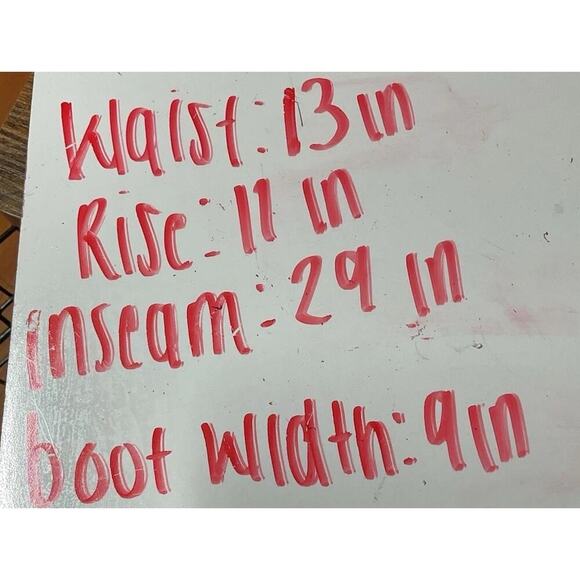 Waist: 13 in
Rise: 11 in
inseam: 29 in
boot width: 9in